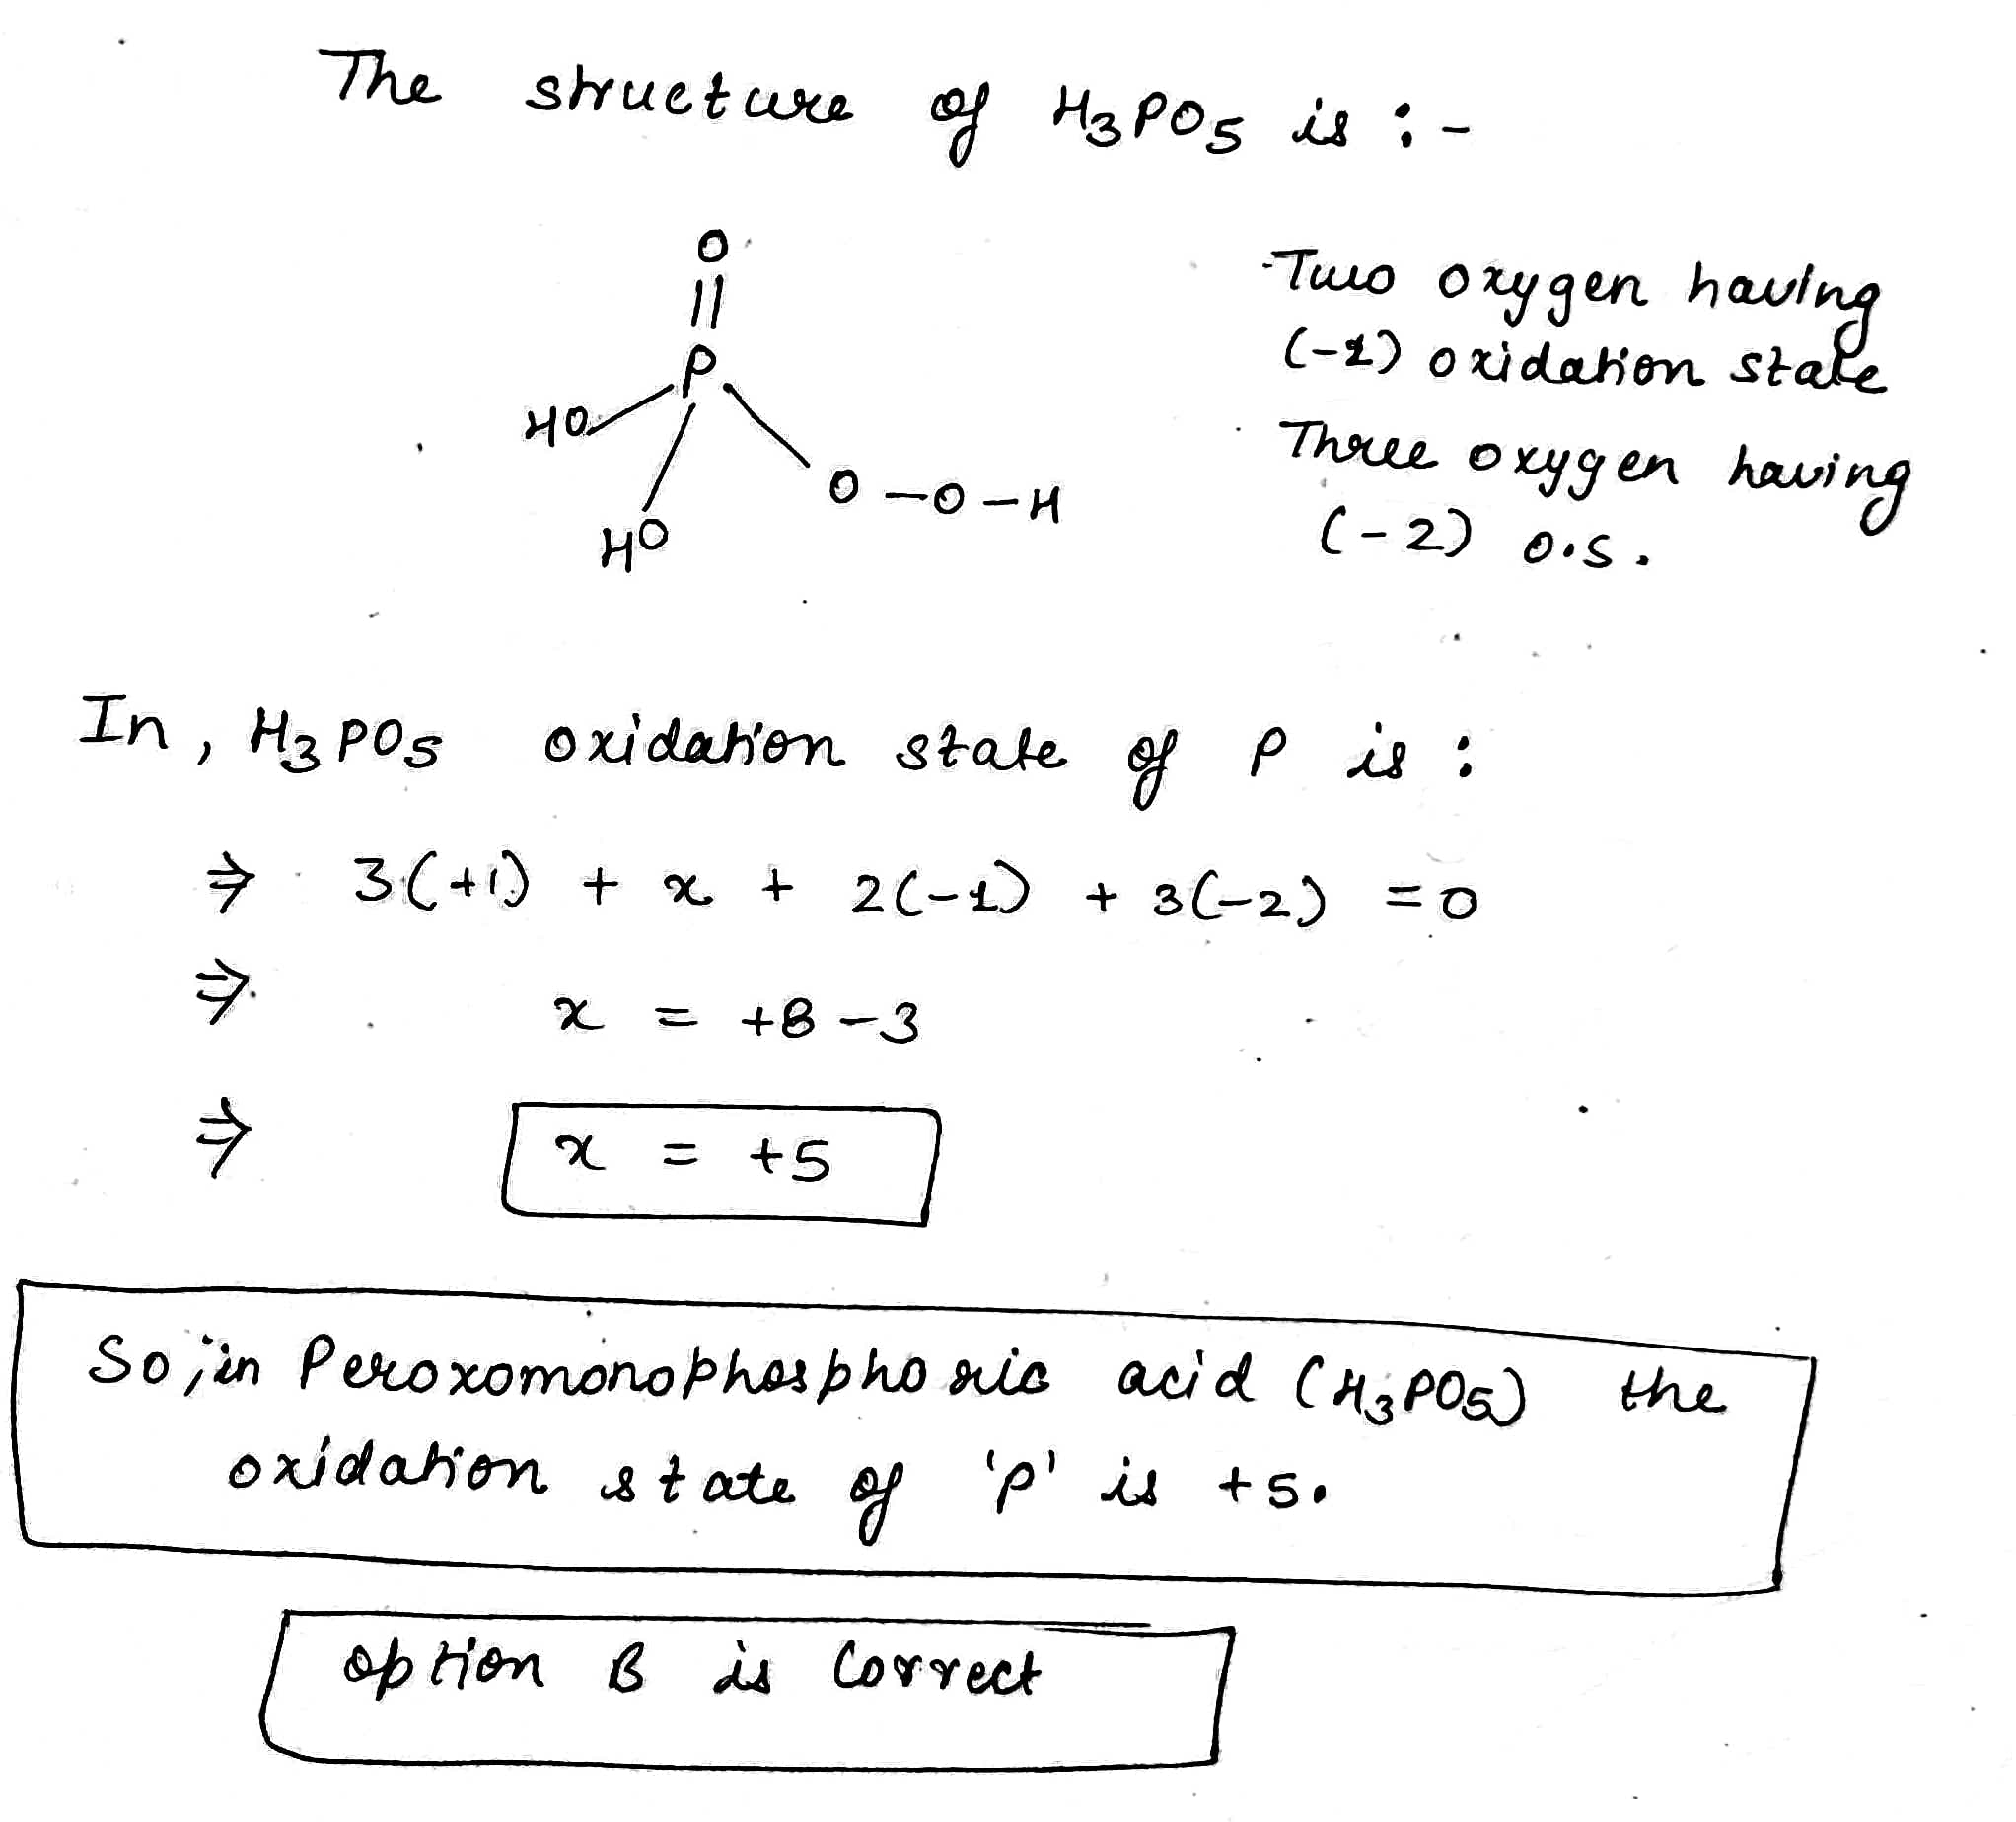 The structure of H₃PO₅ is :-
O
||
P
HO
O-O-H
HO
Two oxygen having
(-1) oxidation state
Three oxygen having
(-2) o.s.
In, H₃PO₅ oxidation state of P is :
⇒ 3(+1) + x + 2(-1) + 3(-2) = 0
⇒ x = +8 - 3
⇒ x = +5
So, in Peroxomonophosphoric acid (H₃PO₅) the
oxidation state of 'P' is +5.
option B is Correct